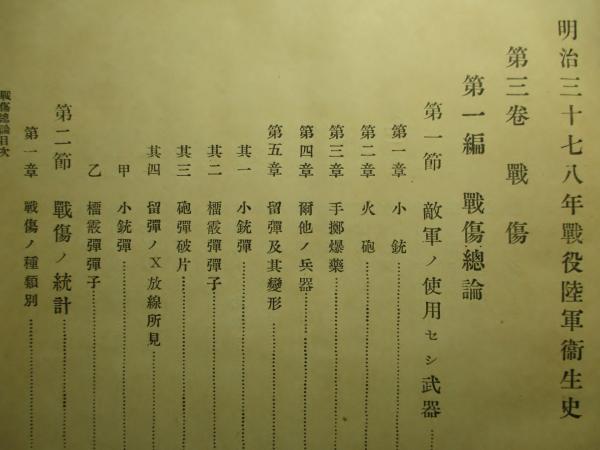 明治三十七八年戰役陸軍衞生史
第三卷 戰傷
第一編 戰傷總論
第一節 敵軍ノ使用セシ武器
第一章 小銃
第二章 火砲
第三章 手擲爆藥
第四章 爾他ノ兵器
第五章 留彈及其變形
其一 小銃彈
其二 榴霰彈彈子
其三 砲彈破片
其四 留彈ノX放線所見
甲 小銃彈
乙 榴霰彈彈子
第二節 戰傷ノ統計
第一章 戰傷ノ種類別
戰傷總論目次